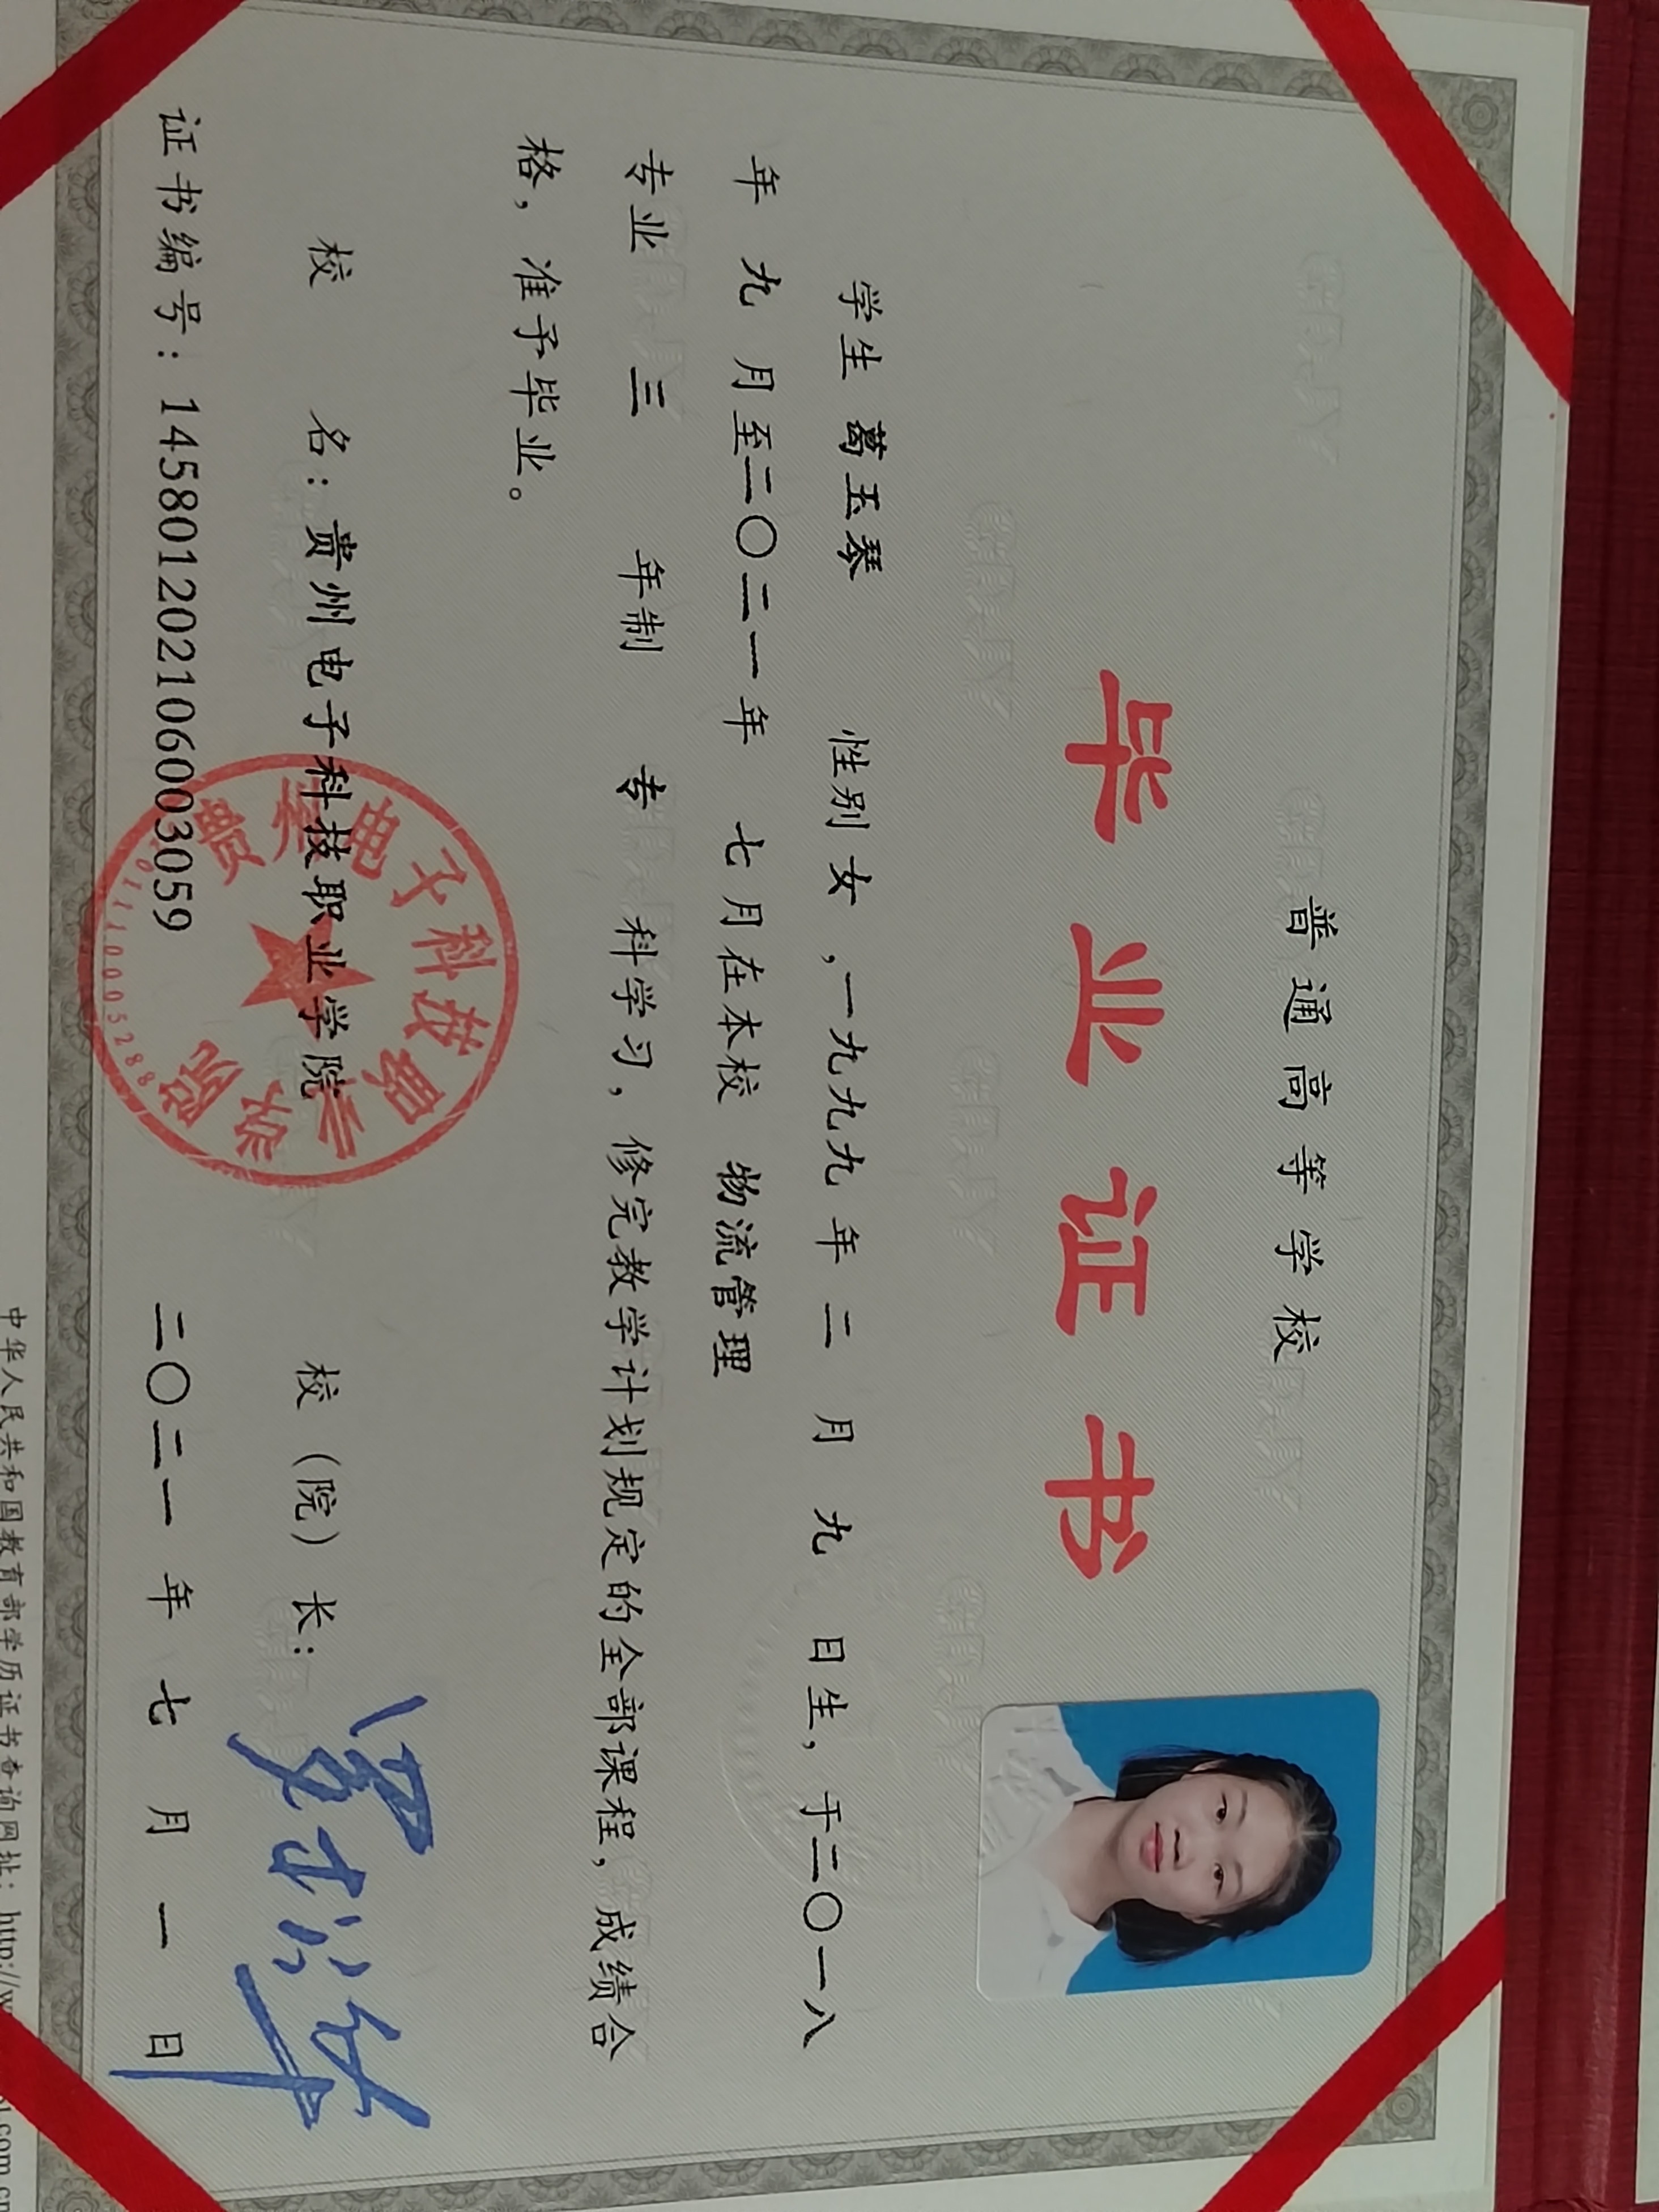 普通高等学校
毕业证书
学生 葛玉琴 性别 女 ,一九九九 年 二 月 九 日生，于二〇一八
年 九 月至二〇二一年 七月在本校 物流管理
专业 三 年制 专 科学习，修完教学计划规定的全部课程，成绩合
格，准予毕业。
校 名：贵州电子科技职业学院
校（院）长：
证书编号：145801202106003059
二〇二一 年 七 月 一 日
贵州电子科技职业学院
中华人民共和国教育部学历证书查询网址：http://w